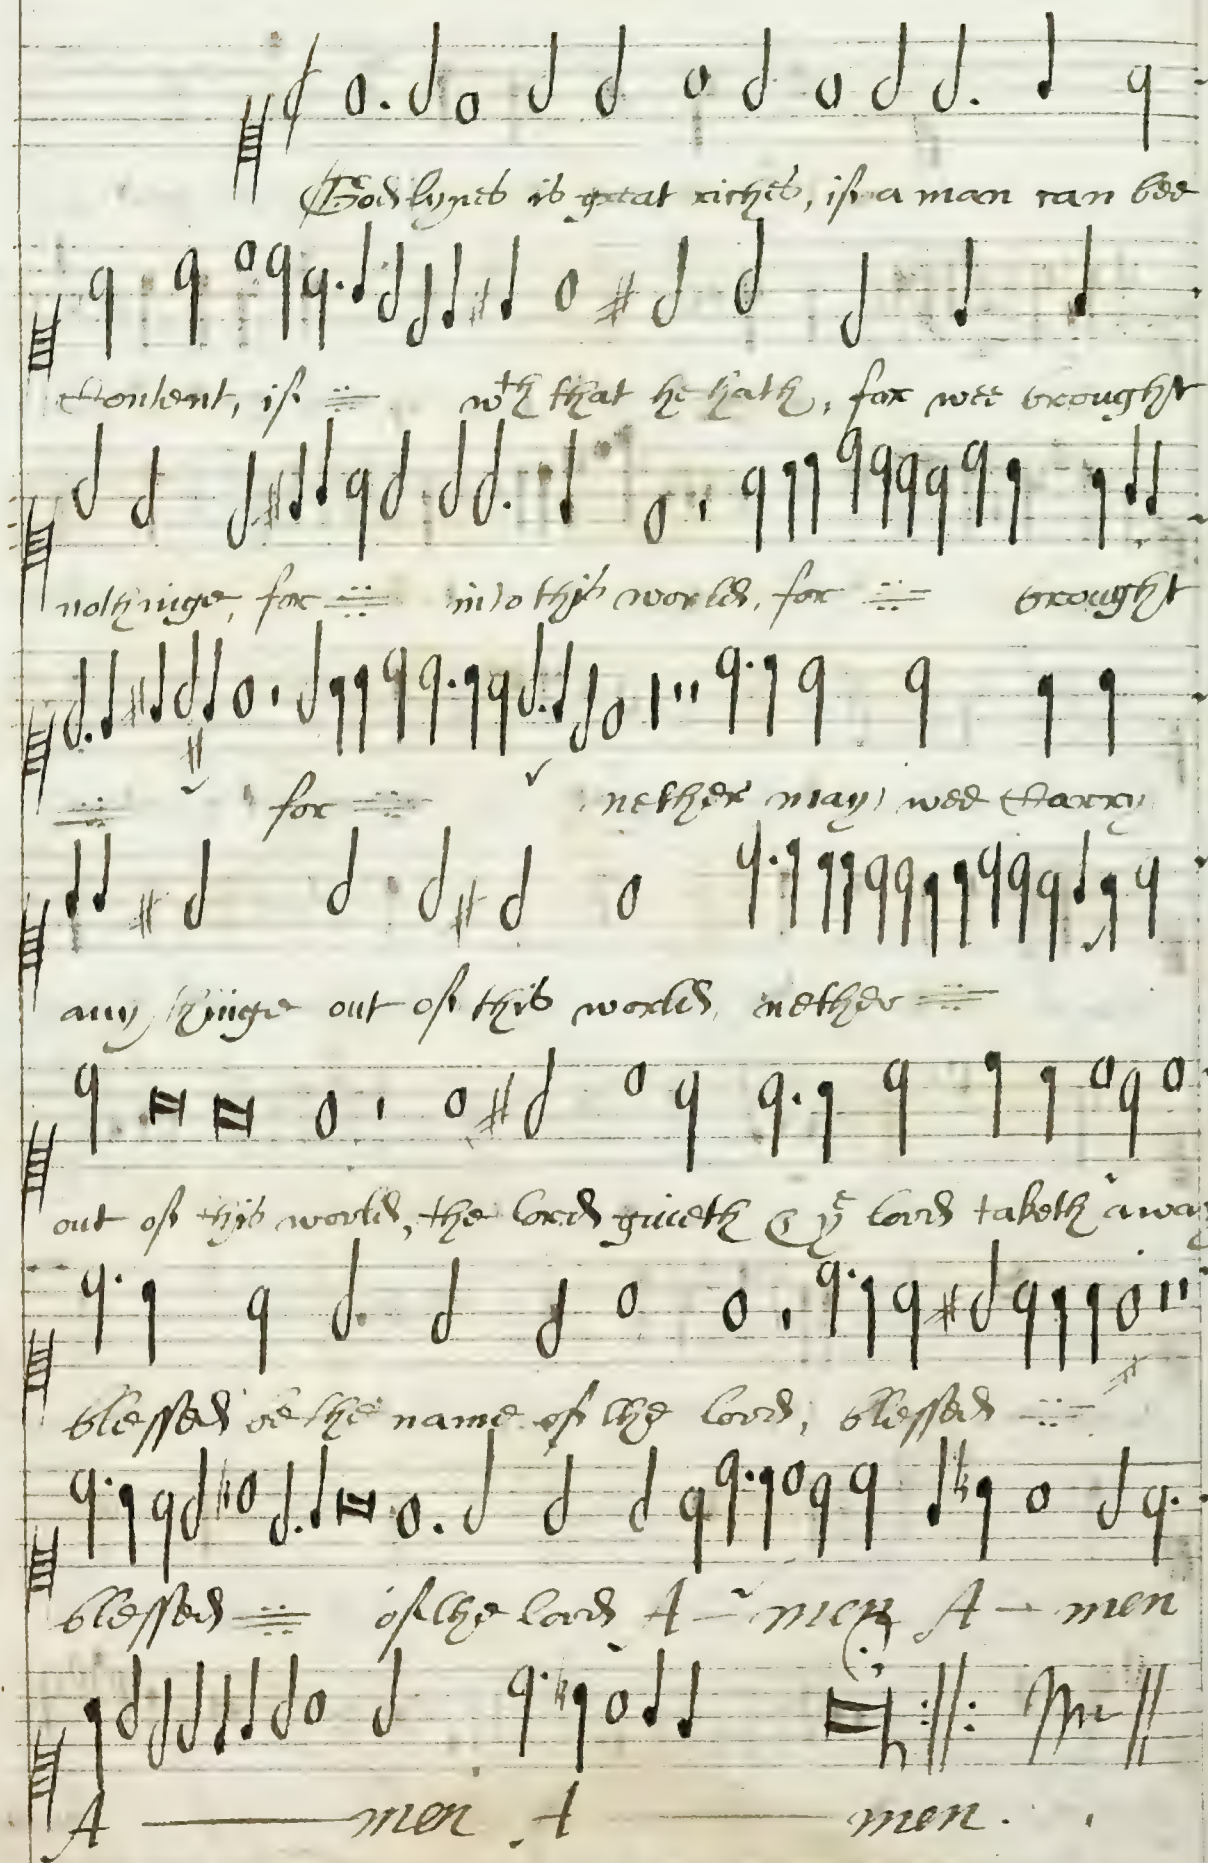 Godlynes is great riches, if a man can bee
Content, if wth that he hath, for wee brought
nothinge, for into this world, for brought
for nether may wee Carry
any thinge out of this world, nether
out of this world, the lord giueth & ye lord taketh away
blessed be the name of the lord, blessed
blessed of the lord A - men A - men
A men A men.